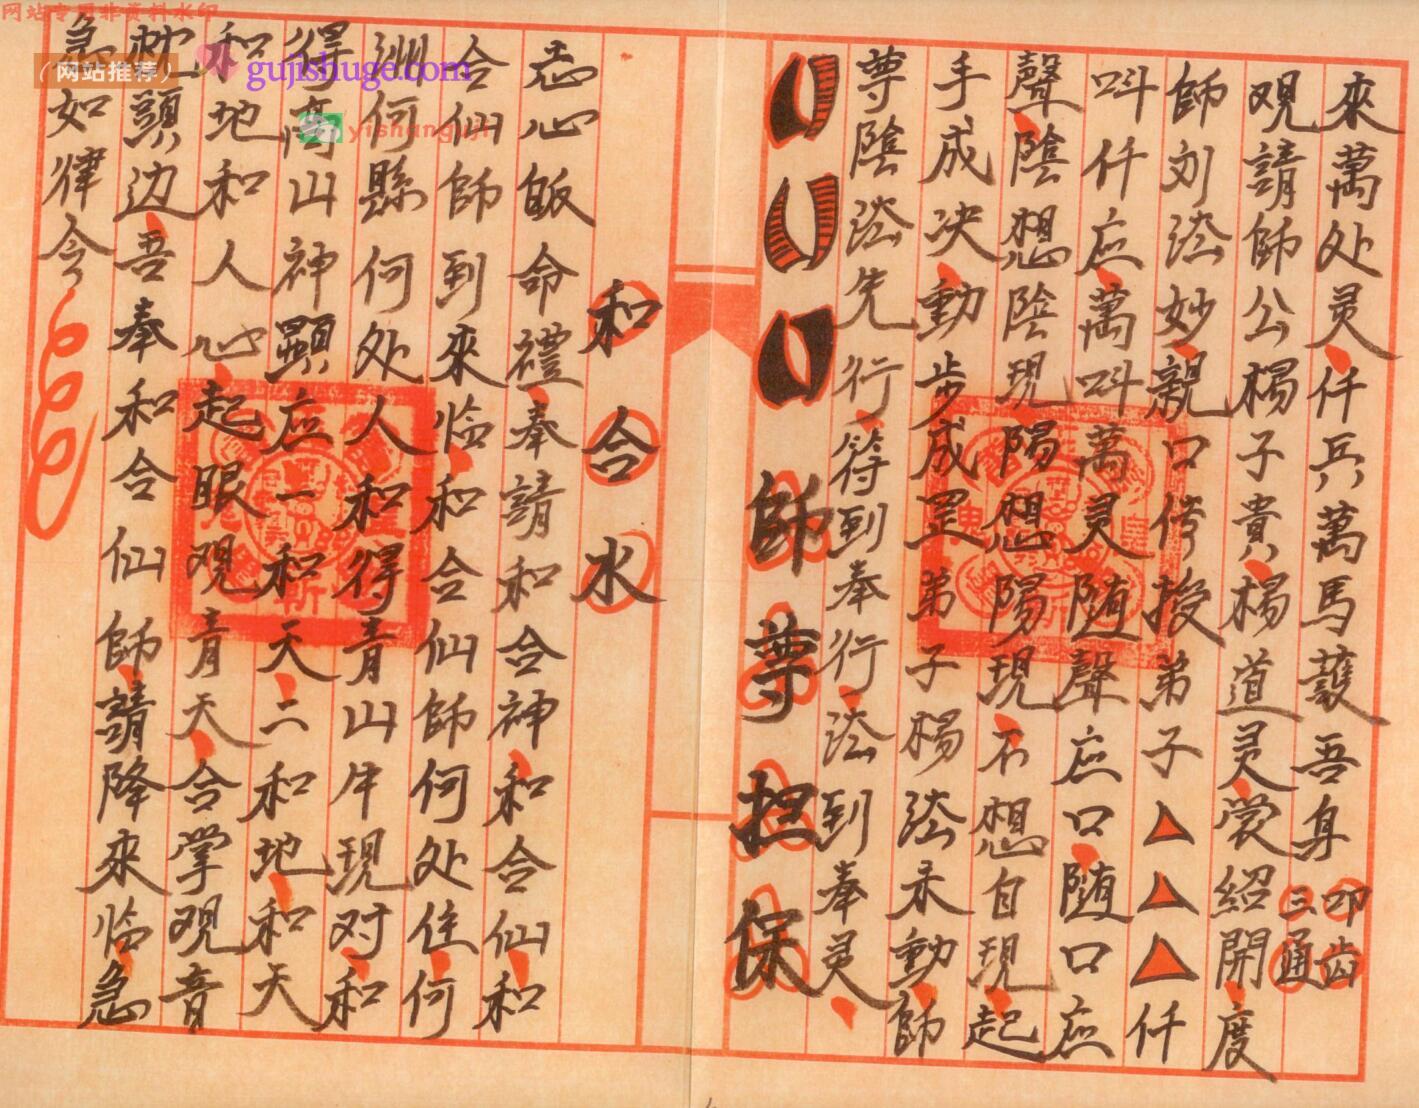 來萬处灵仟兵萬馬護吾身
叩齿三通
覌請師公楊子貴楊道灵裳紹開度
師刘法妙親口传授弟子仟
呌仟应萬呌萬灵随聲应口随口应
聲陰想陰現陽想陽現不想自現起
手成决動步成罡弟子楊法禾動師
尊陰法先行符到奉行法到奉灵
師尊担保
和合水
志心皈命禮奉請和合神和合仙和
合仙師到來临和合仙師何处住何
洲何縣何处人和得青山牛現对和
得高山神顕应一和天二和地和天
和地和人心起眼覌青天合掌覌音
枕頭边吾奉和合仙師請降來临急
急如律令
网站专用非资料水印
(网站推荐)
gujishuge.com
yishanguji